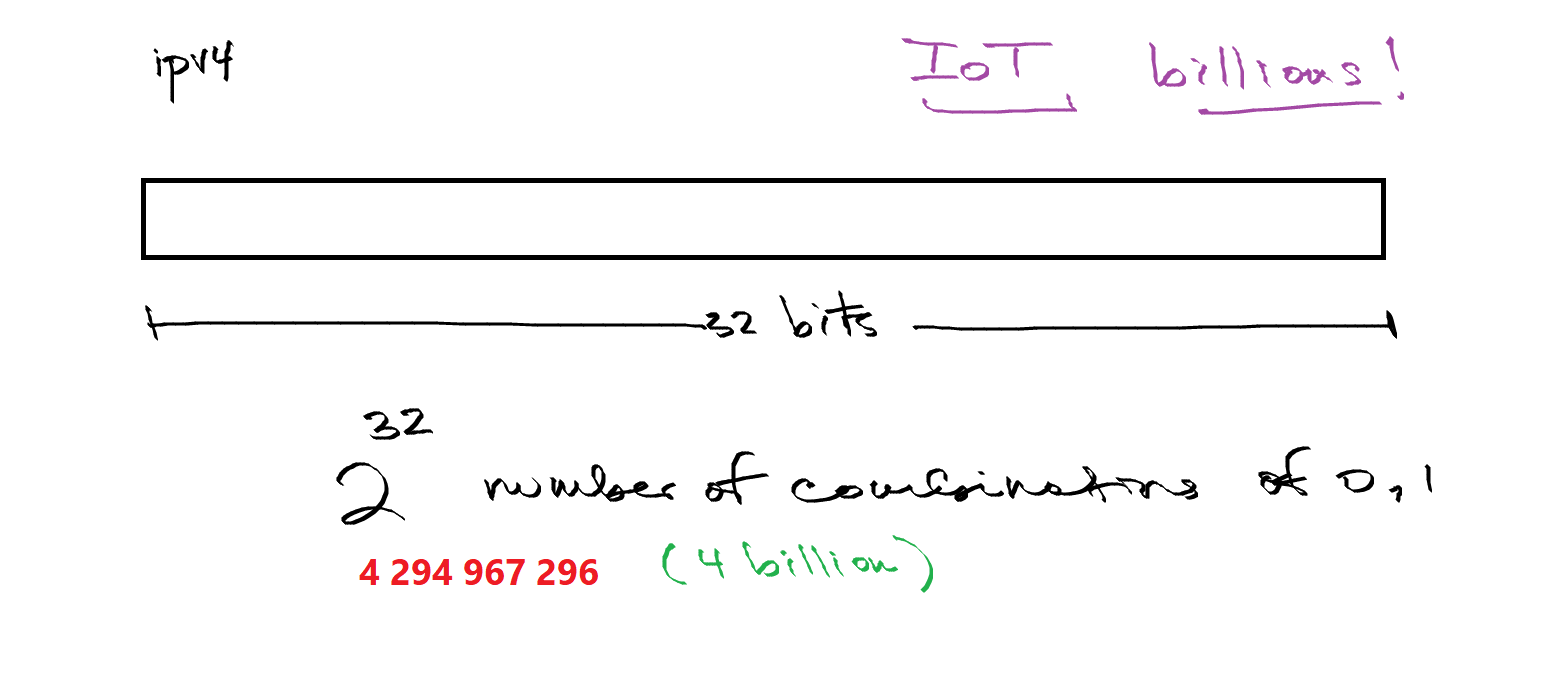 ipv4
IoT billions!
32 bits
2^32 number of combinations of 0,1
4 294 967 296 (4 billion)